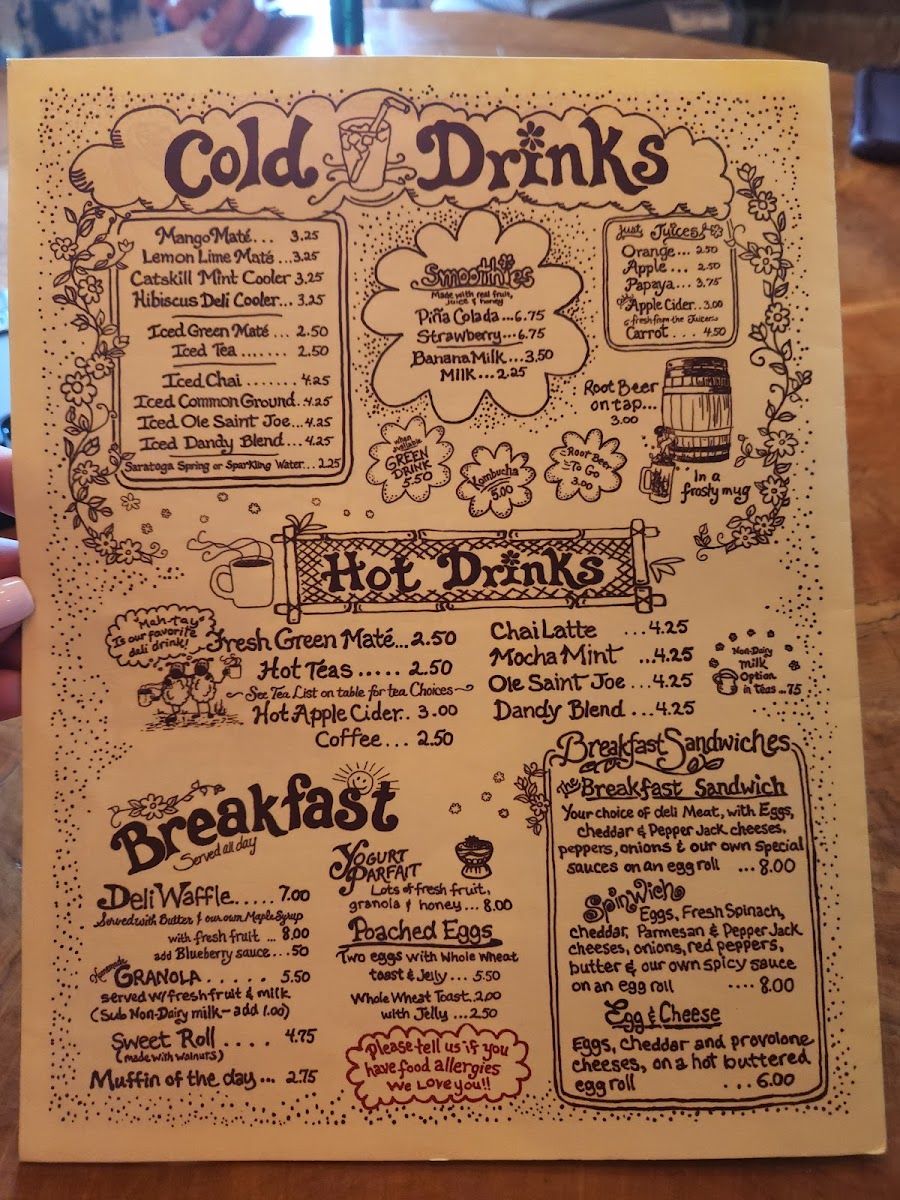 Cold Drinks
Mango Maté... 3.25
Lemon Lime Maté...3.25
Catskill Mint Cooler 3.25
Hibiscus Deli Cooler... 3.25
Iced Green Maté ... 2.50
Iced Tea ....... 2.50
Iced Chai ....... 4.25
Iced Common Ground. 4.25
Iced Ole Saint Joe...4.25
Iced Dandy Blend...4.25
Saratoga Spring or Sparkling Water... 2.25
Smoothies
Made with real fruit,
juice & honey
Piña Colada ...6.75
Strawberry....6.75
Banana Milk...3.50
Milk ... 2.25
Just Juices!
Orange... 2.50
Apple... 2.50
Papaya... 3.75
Apple Cider..3.00
fresh from the Juicer
Carrot .... 4.50
Root Beer
on tap...
3.00
In a
frosty mug
when
available
GREEN
DRINK
5.50
Kombucha
5.00
Root Beer
To Go
3.00
Hot Drinks
"Meh-tay"
Is our favorite
deli drink!
Fresh Green Maté...2.50
Hot Teas ..... 2.50
See Tea List on table for tea Choices
Hot Apple Cider.. 3.00
Coffee... 2.50
Chai Latte ...4.25
Mocha Mint ...4.25
Ole Saint Joe ...4.25
Dandy Blend ...4.25
Non-Dairy
Milk
Option
in teas ...75
Breakfast
Served all day
Deli Waffle..... 7.00
Served with Butter & our own Maple Syrup
with fresh fruit ... 8.00
add Blueberry sauce...50
Homemade
GRANOLA ...... 5.50
served w/ fresh fruit & milk
(Sub Non-Dairy milk - add 1.00)
Sweet Roll .... 4.75
(made with walnuts)
Muffin of the day... 2.75
YOGURT
PARFAIT
Lots of fresh fruit,
granola & honey... 8.00
Poached Eggs
Two eggs with Whole Wheat
toast & Jelly... 5.50
Whole Wheat Toast.2.00
with Jelly ...2.50
Please tell us if you
have food allergies
We Love you!!
Breakfast Sandwiches
The Breakfast Sandwich
Your choice of deli Meat, with Eggs,
cheddar & Pepper Jack cheeses,
peppers, onions & our own special
sauces on an egg roll ... 8.00
Spinwich
Eggs, Fresh Spinach,
cheddar, Parmesan & Pepper Jack
cheeses, onions, red peppers,
butter & our own spicy sauce
on an egg roll .... 8.00
Egg & Cheese
Eggs, cheddar and provolone
cheeses, on a hot buttered
egg roll ... 6.00